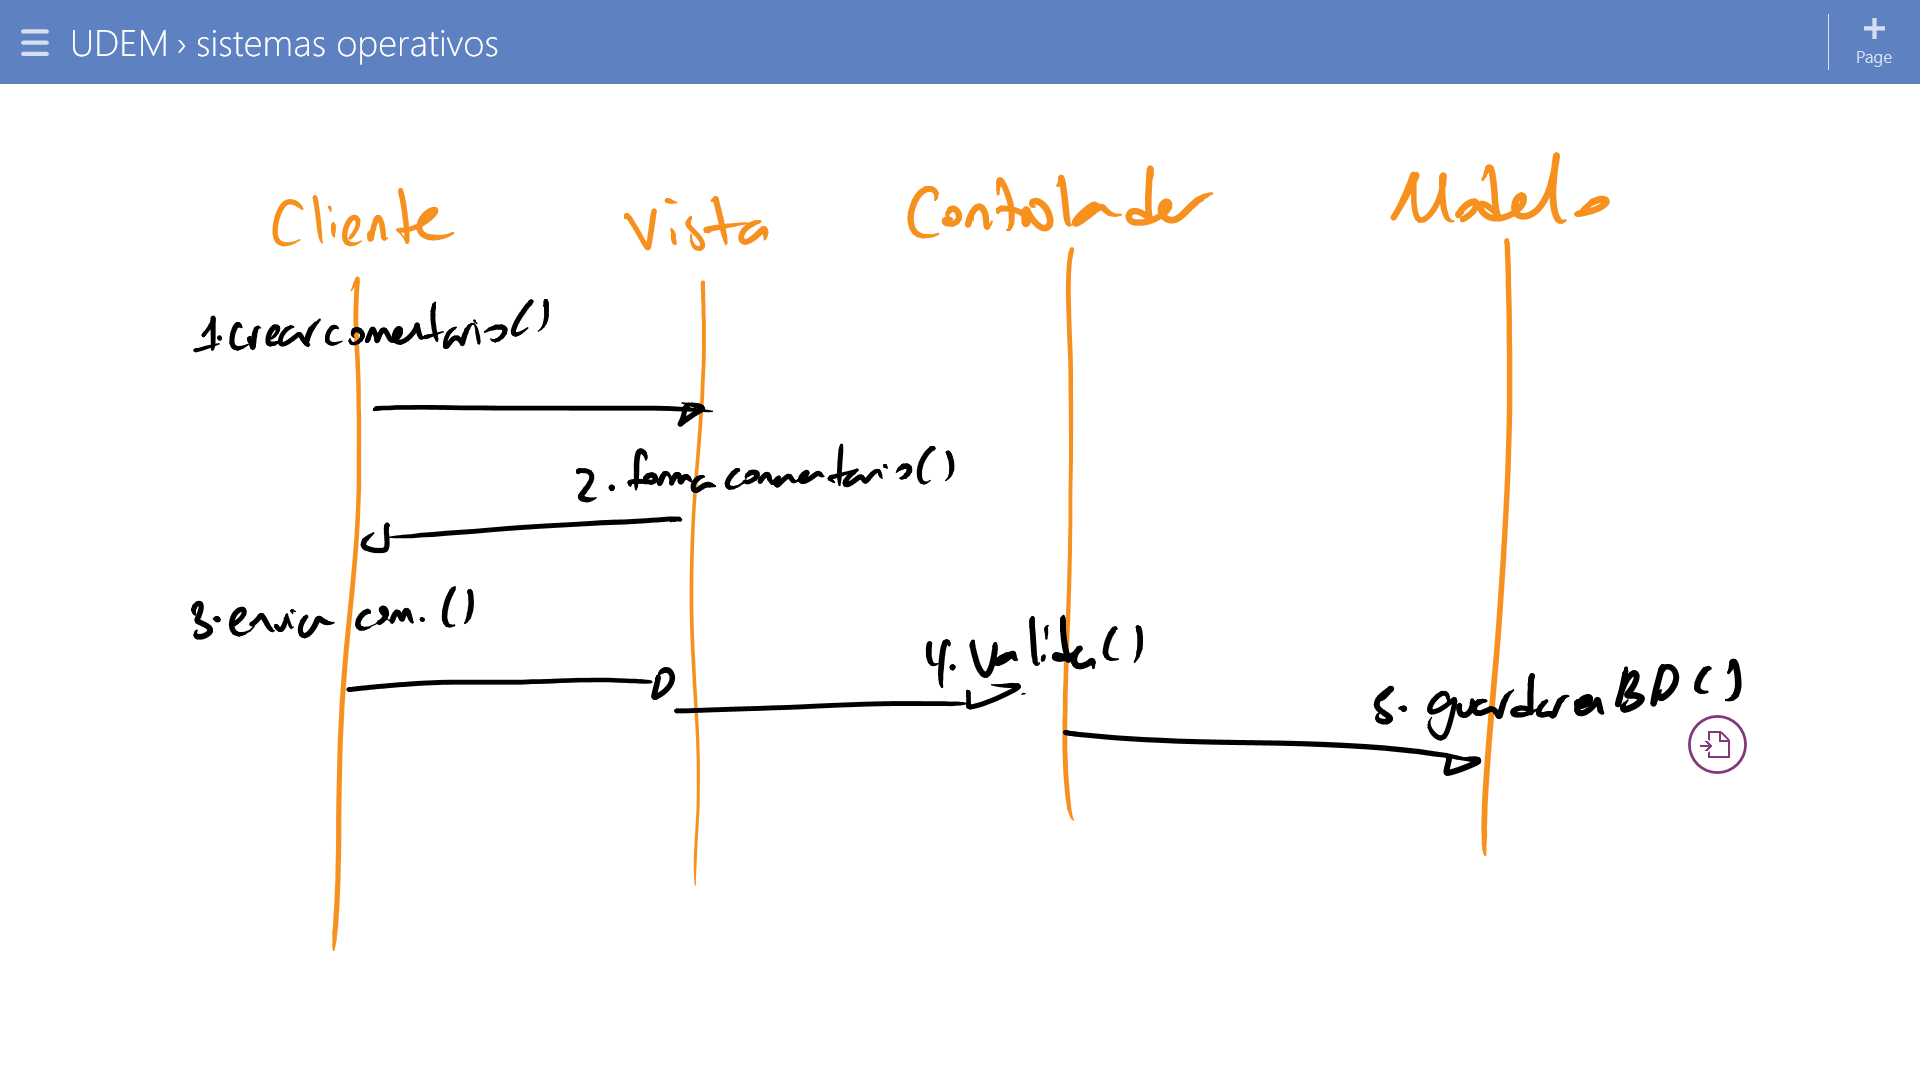 UDEM › sistemas operativos
Page
Cliente Vista Controlador Modelo
1. crear comentario()
2. forma comentario()
3. envia com. ()
4. valida()
5. guardar en BD()